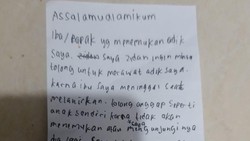 Assalamualaikum
Ibu/Bapak yg menemukan adik
saya. saya zidan ingin minta
tolong untuk merawat adik saya.
karna ibu saya meninggal saat
melahirkan. tolong anggap seperti
anak sendiri karna tidak akan
menemukan atau mengunjungi nya
saya